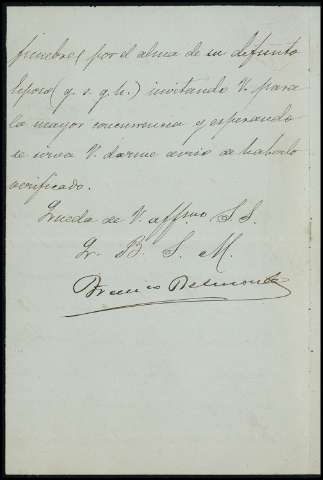 funebres por el alma de su difunto
Esposo (q. s. g. h.) invitando V. para
la mayor concurrencia y esperando
se sirva V. darme aviso de haberlo
verificado.
Queda de V. affmo S. S.
Q. B. S. M.
Franco Belmonte